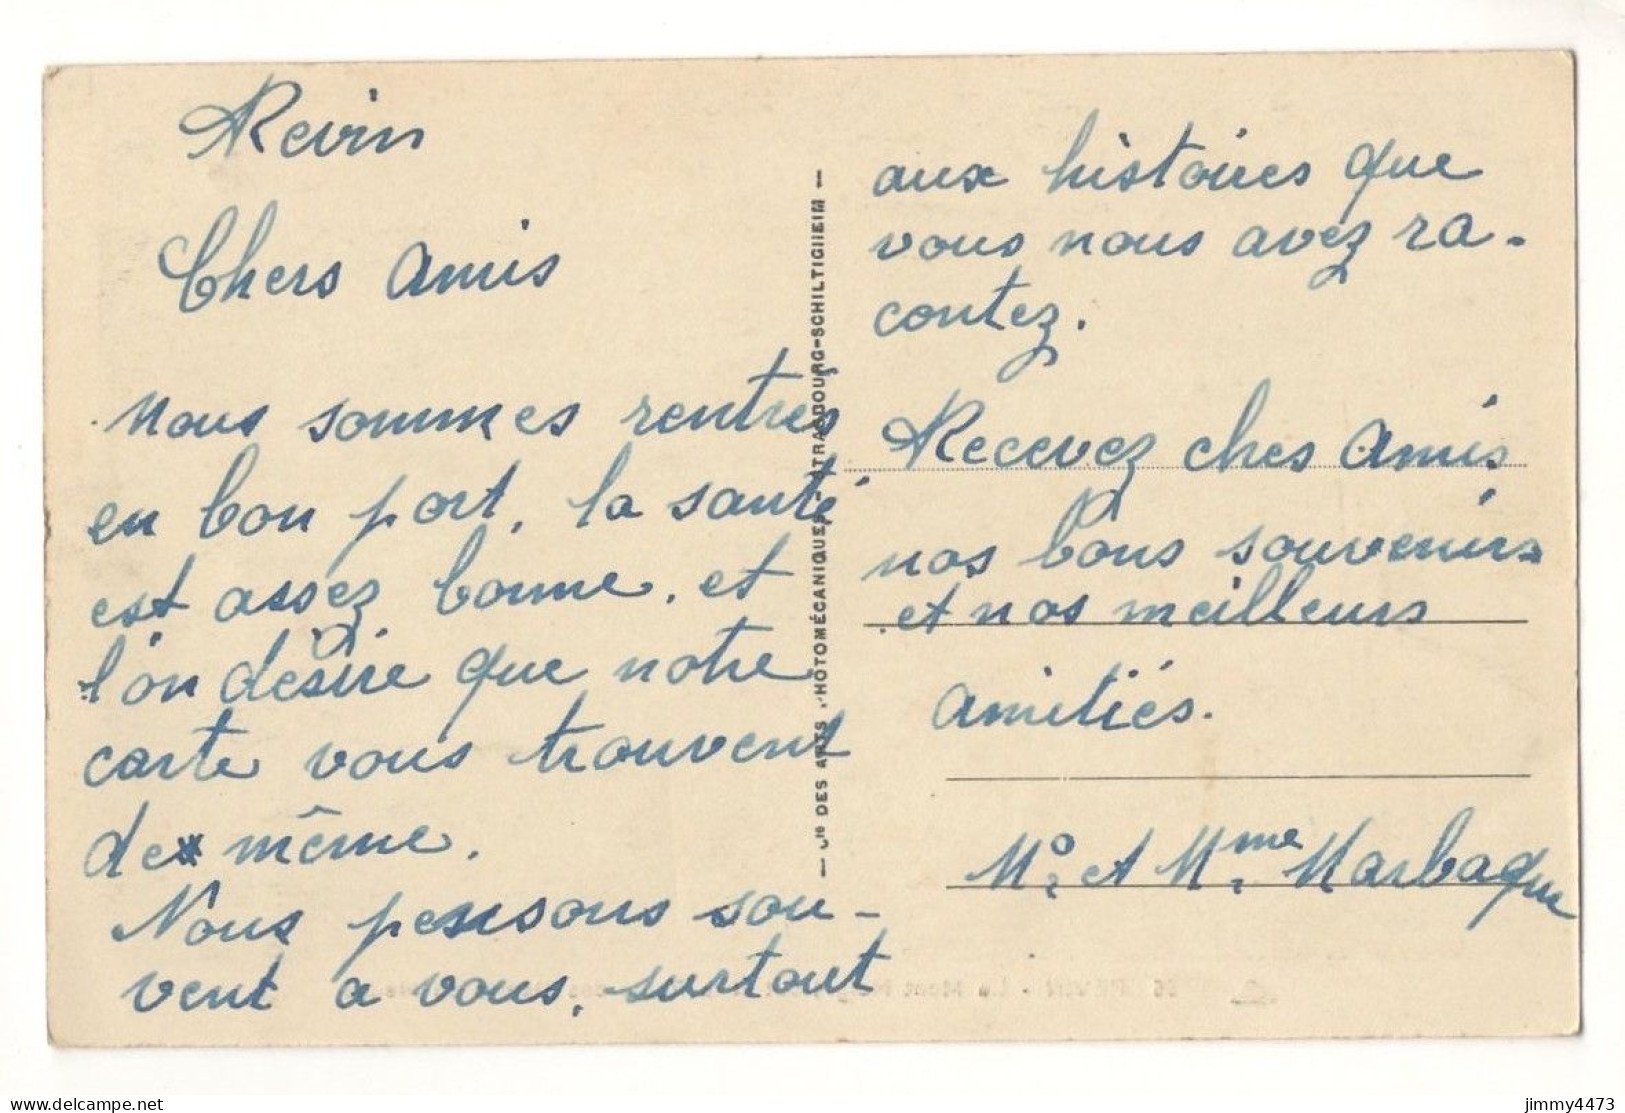 Revin
Chers Amis
Nous sommes rentrés
en bon port, la santé
est assez bonne, et
l'on désire que notre
carte vous trouvent
de même.
Nous pensons sou-
vent a vous, surtout
aux histoires que
vous nous avez ra-
contez.
Recevez chers Amis
nos bons souvenirs
et nos meilleurs
amitiés.
Mr. et Mme. Marbaque
— Cie DES ARTS PHOTOMÉCANIQUES - STRASBOURG-SCHILTIGHEIM —
delcampe.net
jimmy4473